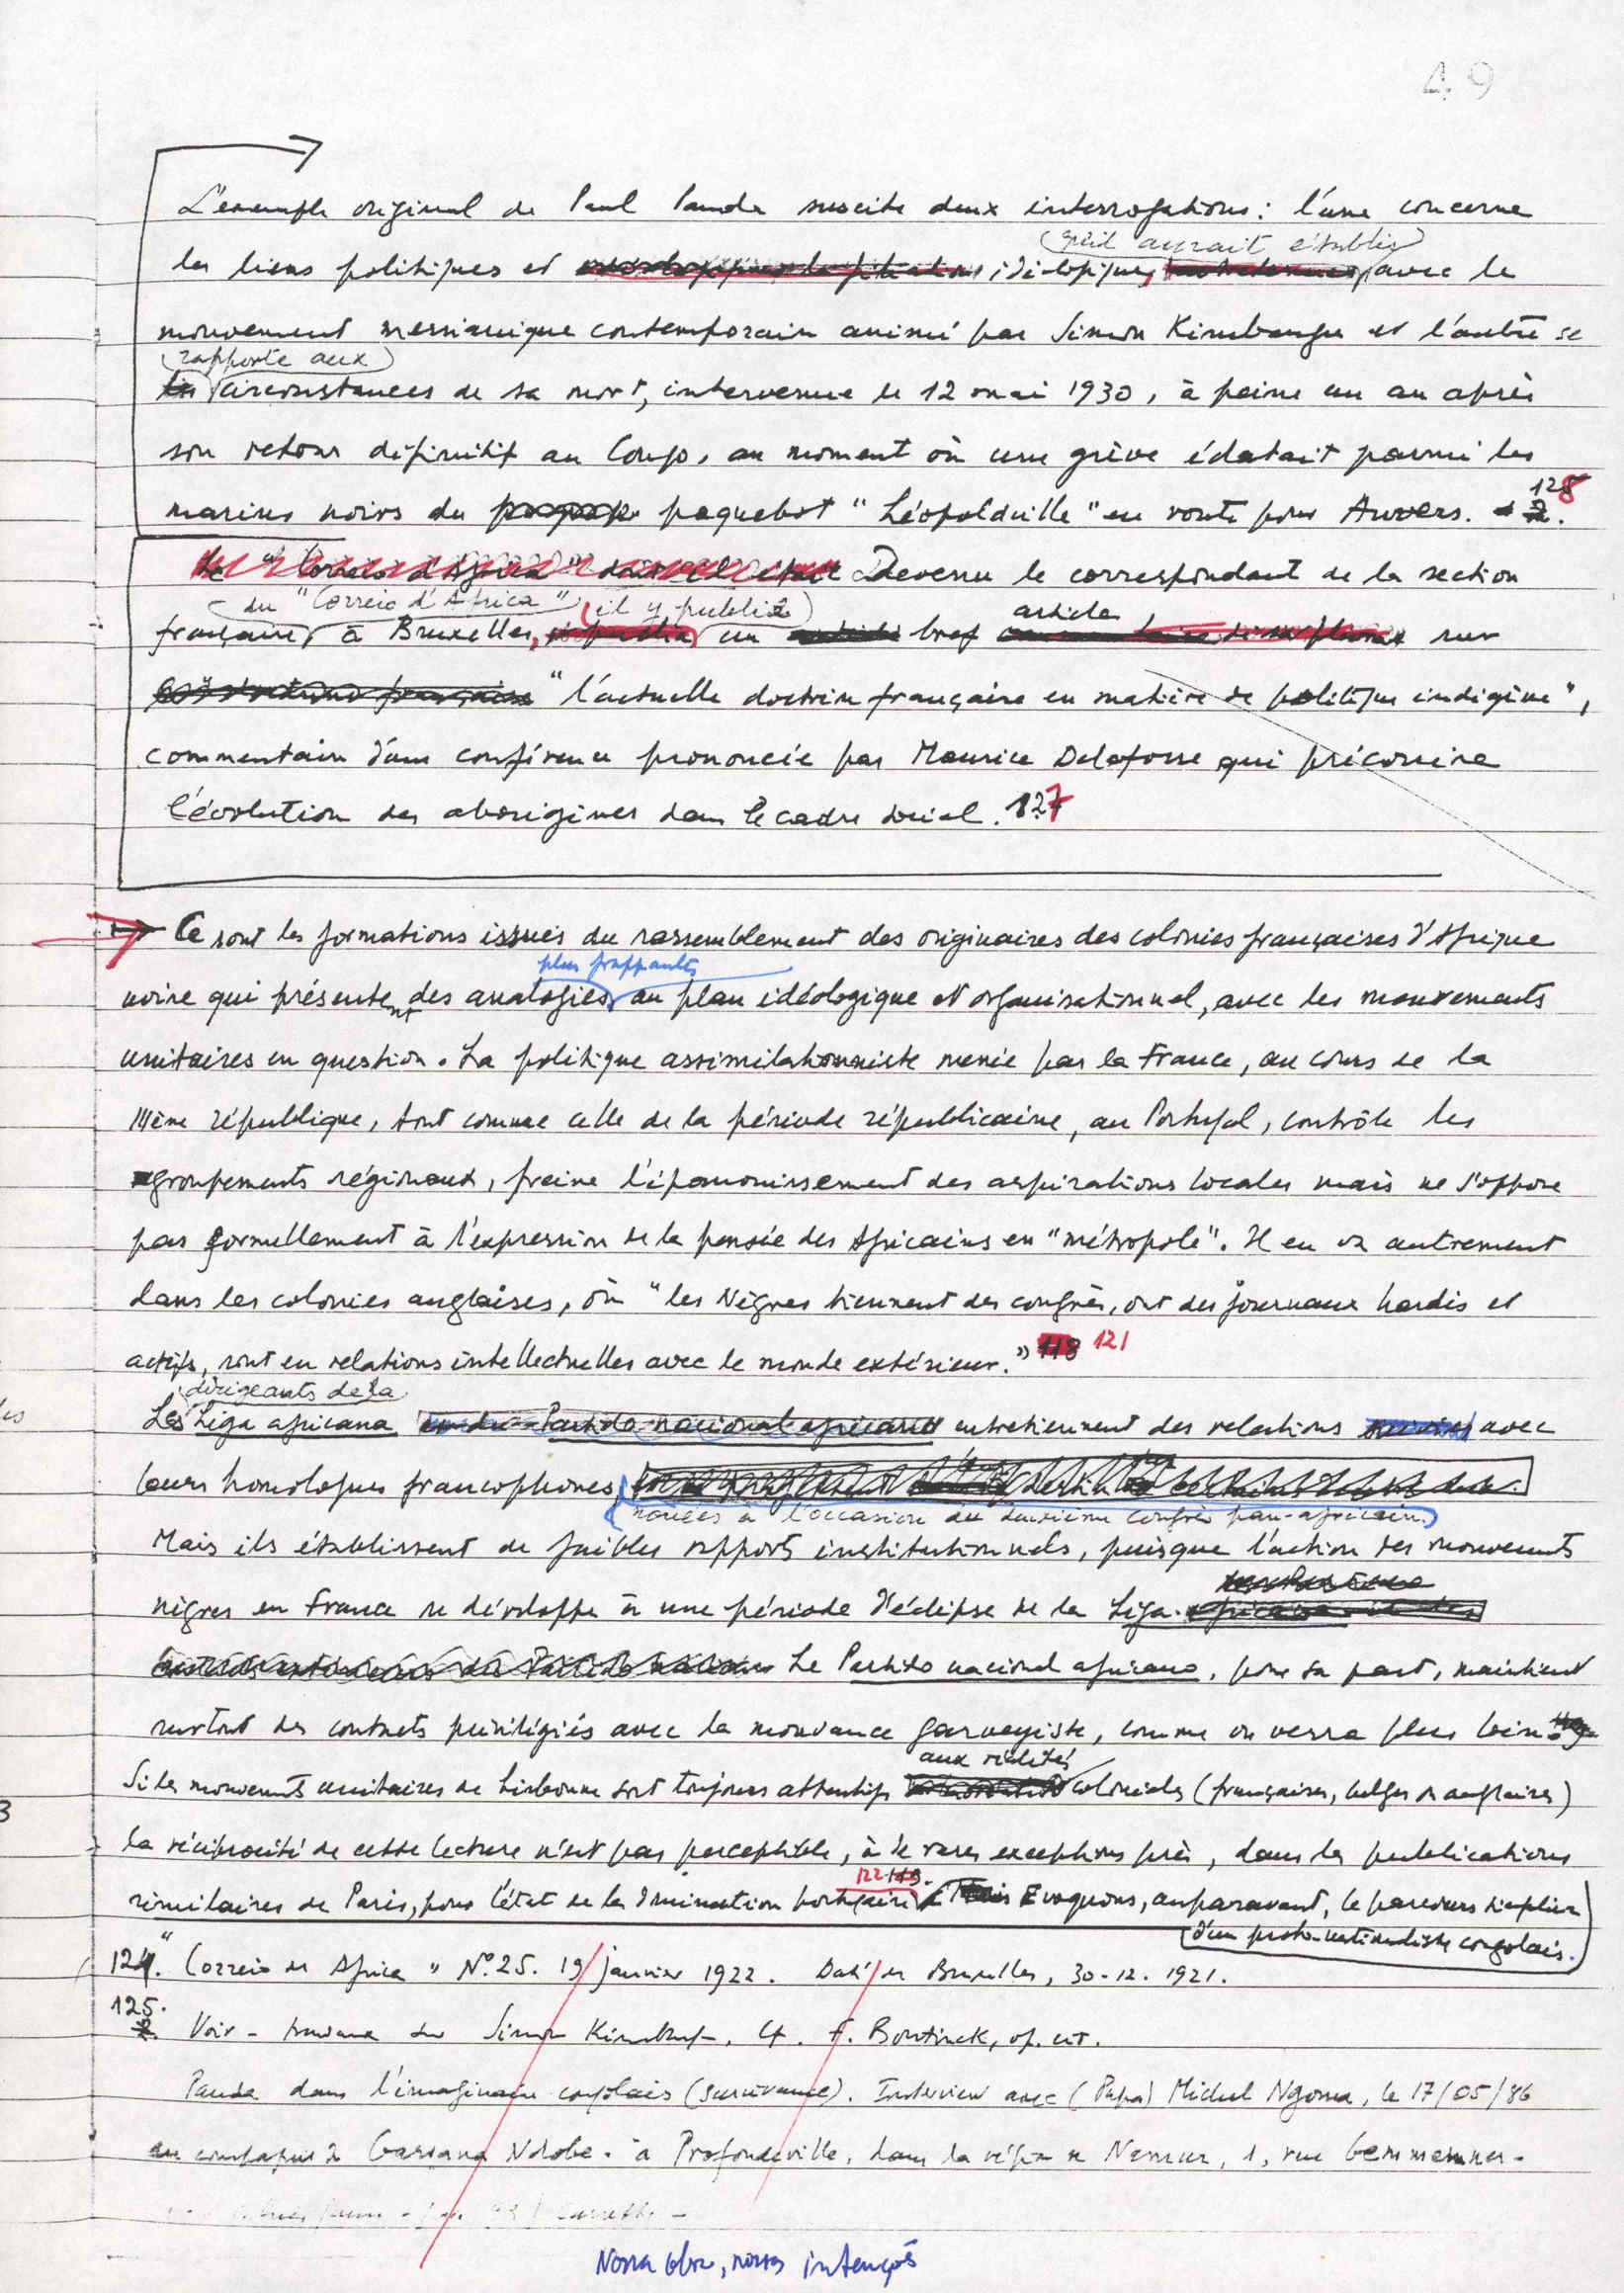 49
L'exemple original de Paul Panda suscite deux interrogations : l'une concerne
(qu'il aurait établis)
les liens politiques et idéologiques, avec le
mouvement messianique contemporain animé par Simon Kimbangu et l'autre se
(rapporte aux)
circonstances de sa mort, intervenue le 12 mai 1930, à peine un an après
son retour définitif au Congo, au moment où une grève éclatait parmi les
marins noirs du paquebot "Léopoldville" en route pour Anvers. 125.
Le "Correio d'Africa" dont il était Devenu le correspondant de la section
du "Correio d'Africa" (il y publia)
article
française, à Bruxelles, un bref sur
"l'actuelle doctrine française en matière de politique indigène",
commentaire d'une conférence prononcée par Maurice Delafosse qui préconise
l'évolution des aborigènes dans le cadre social. 127
→ Ce sont les formations issues du rassemblement des originaires des colonies françaises d'Afrique
plus frappantes
noire qui présentent des analogies, au plan idéologique et organisationnel, avec les mouvements
unitaires en question. La politique assimilationniste menée par la France, au cours de la
IIIème république, tout comme celle de la période républicaine, au Portugal, contrôle les
groupements régionaux, freine l'épanouissement des aspirations locales mais ne s'oppose
pas formellement à l'expression de la pensée des Africains en "métropole". Il en va autrement
dans les colonies anglaises, où "les Nègres tiennent des congrès, ont des journaux hardis et
actifs, sont en relations intellectuelles avec le monde extérieur." 118 121
(dirigeants de la
Les Liga africana et du Partido nacional africano entretiennent des relations suivies avec
leurs homologues francophones,
(nouées à l'occasion du deuxième congrès pan-africain.)
Mais ils établissent de faibles rapports institutionnels, puisque l'action des mouvements
nègres en France se développe à une période d'éclipse de la Liga.
Le Partido nacional africano, pour sa part, maintient
surtout des contacts privilégiés avec la mouvance garveyiste, comme on verra plus loin.
aux réalités
Si les mouvements unitaires de Lisbonne sont toujours attentifs coloniales (françaises, belges ou anglaises)
la réciprocité de cette lecture n'est pas perceptible, à de rares exceptions près, dans les publications
122 119.
similaires de Paris, pour l'état de la domination portugaise. Mais Evoquons, auparavant, le parcours singulier
d'un proto-nationaliste congolais.
124. "Correio de Africa" Nº. 25. 19 janvier 1922. Daté de Bruxelles, 30-12-1921.
125.
Voir - travaux sur Simon Kimbangu. Cf. F. Bontinck, op. cit.
Panda dans l'imaginaire congolais (survivance). Interview avec (Papa) Michel Ngoma, le 17/05/86
en compagnie de Ndobe - à Profondeville, dans la région de Namur, 1, rue
Nossa obra, nossas intenções